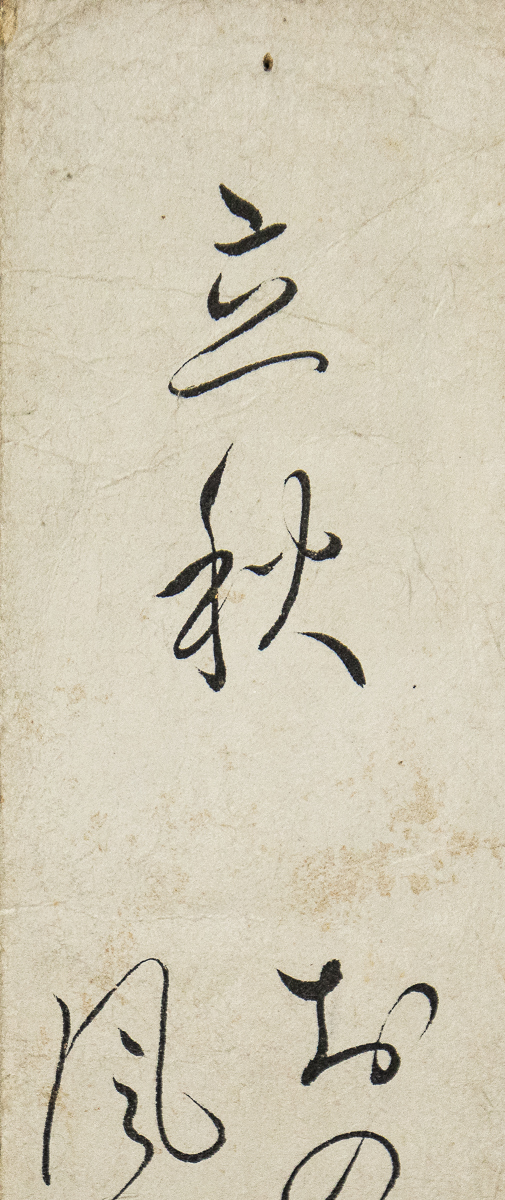 立秋
おの
風